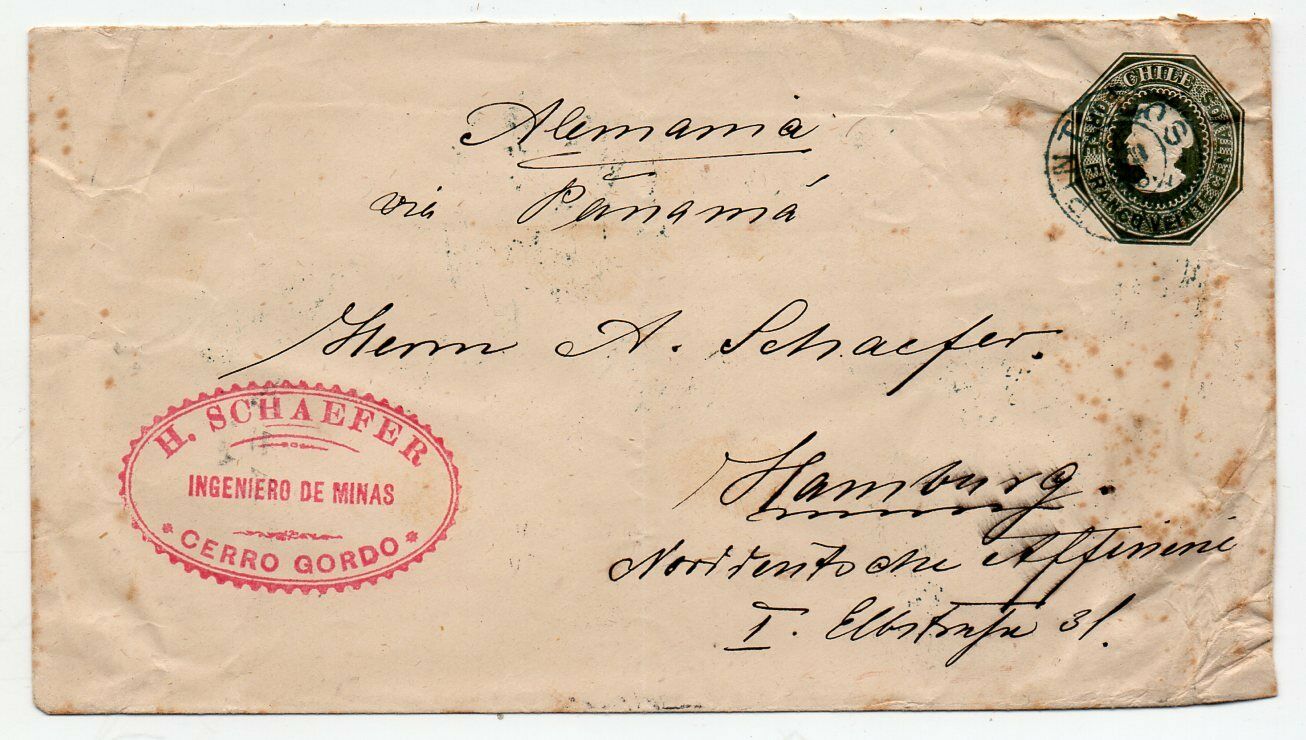 Alemania
via Panamá
Herrn A. Schaefer.
Hamburg.
Norddeutsche Affinerie
I. Elbstraße 31.
H. SCHAEFER
INGENIERO DE MINAS
* CERRO GORDO *
CHILE
FRANCO VEINTE CENTAVOS